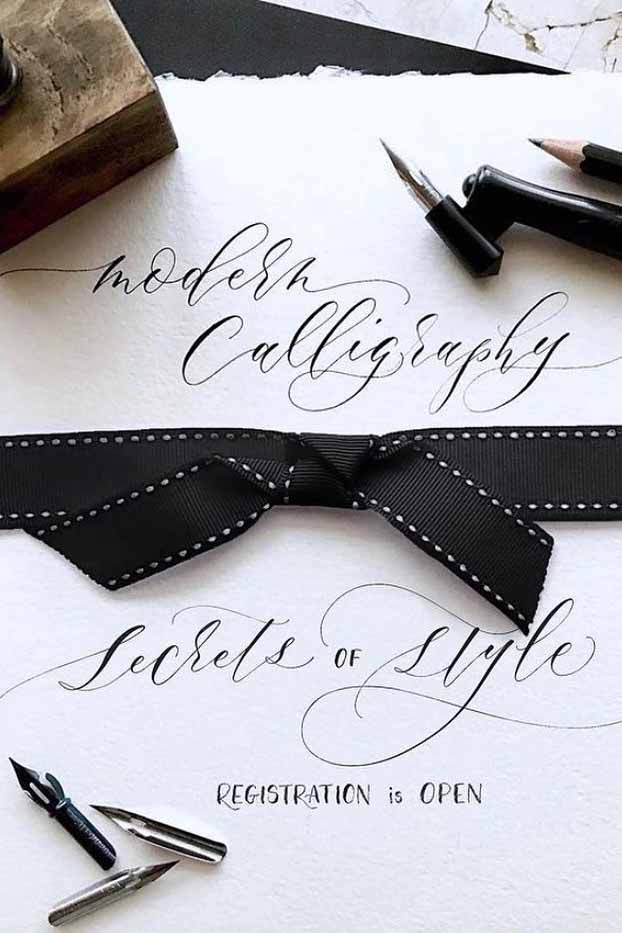 modern
Calligraphy
Secrets OF Style
REGISTRATION is OPEN